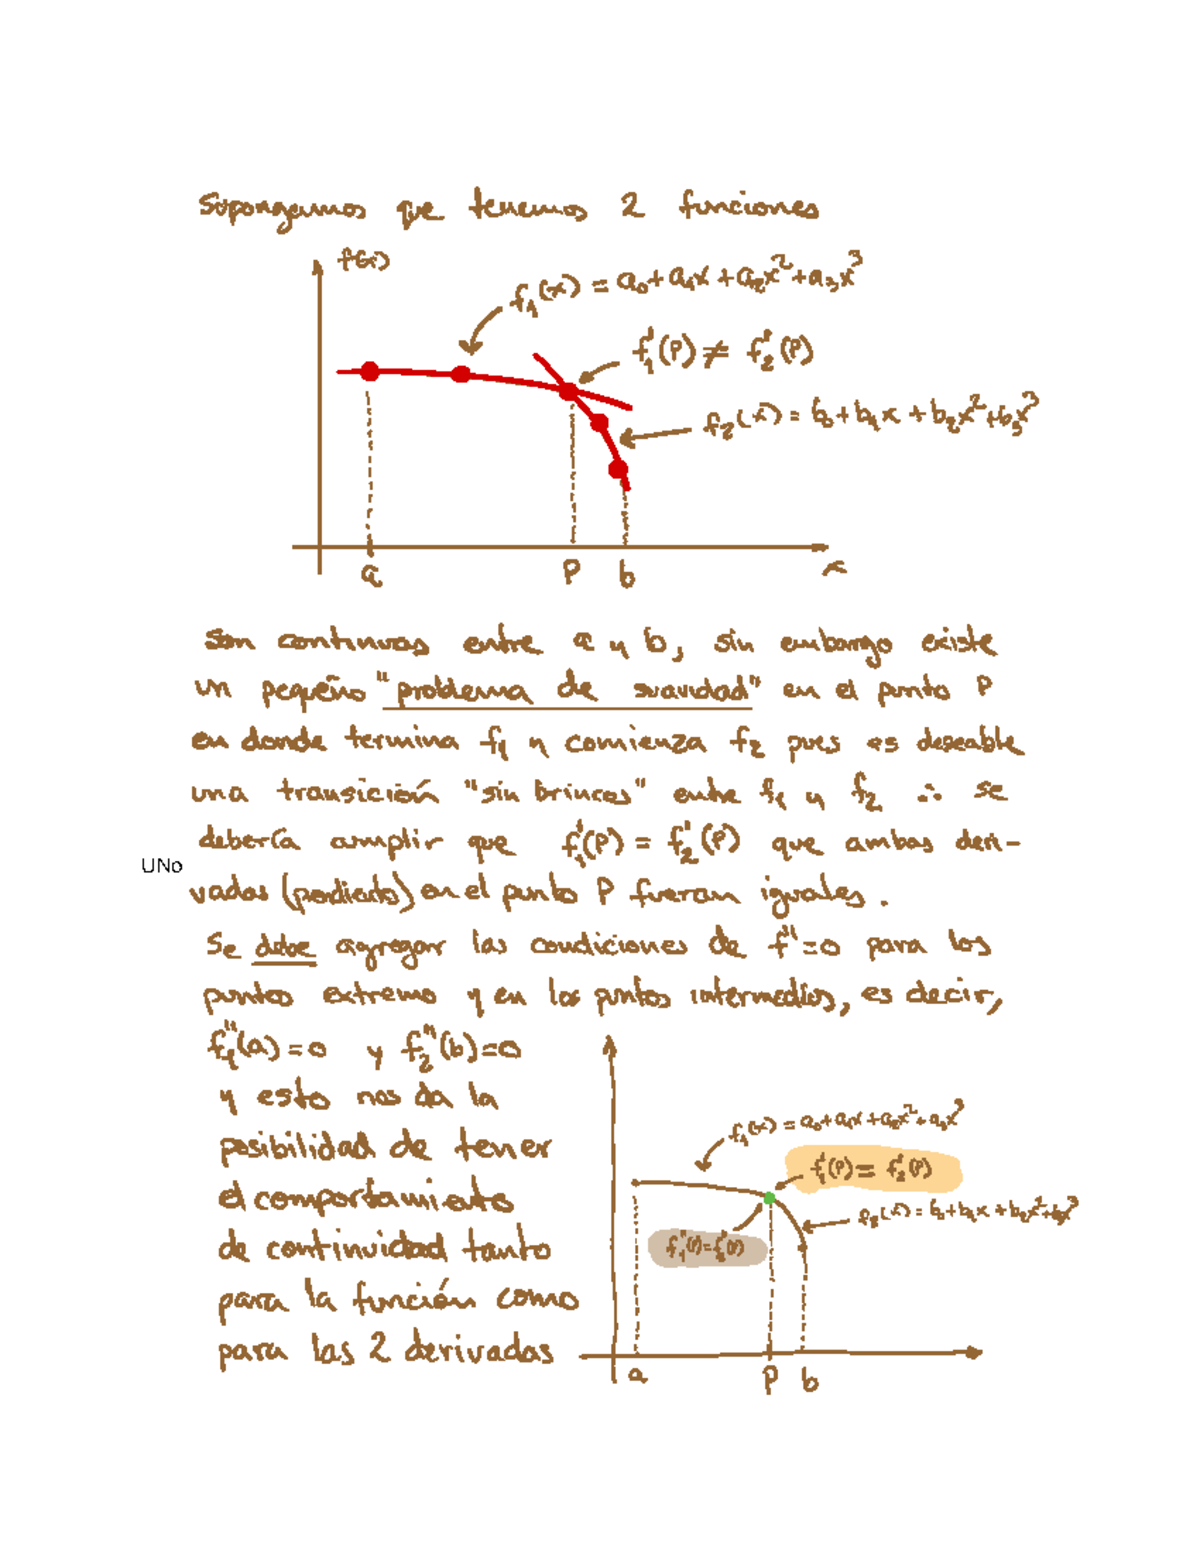 Supongamos que tenemos 2 funciones
f(x)
f₁(x) = a₀+a₁x+a₂x²+a₃x³
f₁'(P) ≠ f₂'(P)
f₂(x) = b₀+b₁x+b₂x²+b₃x³
a P b x
Son continuas entre a y b, sin embargo existe
un pequeño "problema de suavidad" en el punto P
en donde termina f₁ y comienza f₂ pues es deseable
una transición "sin brincos" entre f₁ y f₂ ∴ se
debería cumplir que f₁'(P) = f₂'(P) que ambas deri-
UNo
vadas (pendiente) en el punto P fueran iguales.
Se debe agregar las condiciones de f''=0 para los
puntos extremo y en los puntos intermedios, es decir,
f₁''(a)=0 y f₂''(b)=0
y esto nos da la
posibilidad de tener
el comportamiento
de continuidad tanto
para la función como
para las 2 derivadas
f₁(x) = a₀+a₁x+a₂x²+a₃x³
f₁'(P) = f₂'(P)
f₂(x) = b₀+b₁x+b₂x²+b₃x³
f₁''(P)=f₂''(P)
a P b